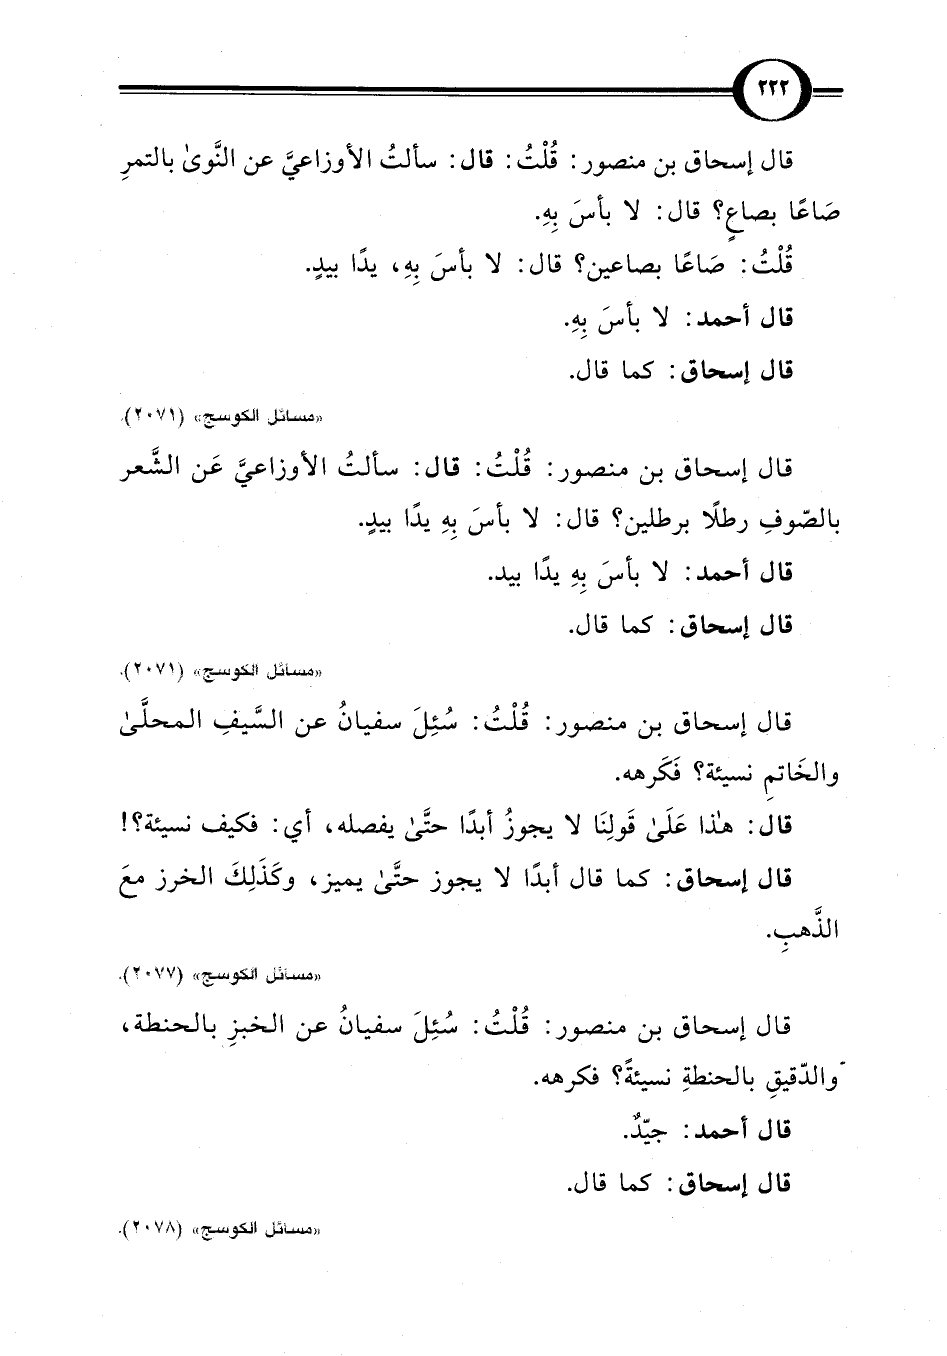 ٢٢٢
قال إسحاق بن منصور: قُلْتُ: قال: سألتُ الأوزاعيَّ عن النَّوىٰ بالتمرِ
صَاعًا بصاعٍ؟ قال: لا بأسَ بِهِ.
قُلْتُ: صَاعًا بصاعين؟ قال: لا بأسَ بِهِ، يدًا بيدٍ.
قال أحمد: لا بأسَ بِهِ.
قال إسحاق: كما قال.
«مسائل الكوسج» (٢٠٧١).
قال إسحاق بن منصور: قُلْتُ: قال: سألتُ الأوزاعيَّ عَن الشَّعر
بالصّوفِ رطلًا برطلين؟ قال: لا بأسَ بِهِ يدًا بيدٍ.
قال أحمد: لا بأسَ بِهِ يدًا بيد.
قال إسحاق: كما قال.
«مسائل الكوسج» (٢٠٧١).
قال إسحاق بن منصور: قُلْتُ: سُئِلَ سفيانُ عن السَّيفِ المحلَّىٰ
والخَاتمِ نسيئة؟ فَكَرهه.
قال: هٰذا عَلَىٰ قَولِنَا لا يجوزُ أبدًا حتَّىٰ يفصله، أي: فكيف نسيئة؟!
قال إسحاق: كما قال أبدًا لا يجوز حتَّىٰ يميز، وكَذَلِكَ الخرز معَ
الذَّهبِ.
«مسائل الكوسج» (٢٠٧٧).
قال إسحاق بن منصور: قُلْتُ: سُئِلَ سفيانُ عن الخبزِ بالحنطة،
والدّقيقِ بالحنطةِ نسيئةً؟ فكرهه.
قال أحمد: جيّدٌ.
قال إسحاق: كما قال.
«مسائل الكوسج» (٢٠٧٨).